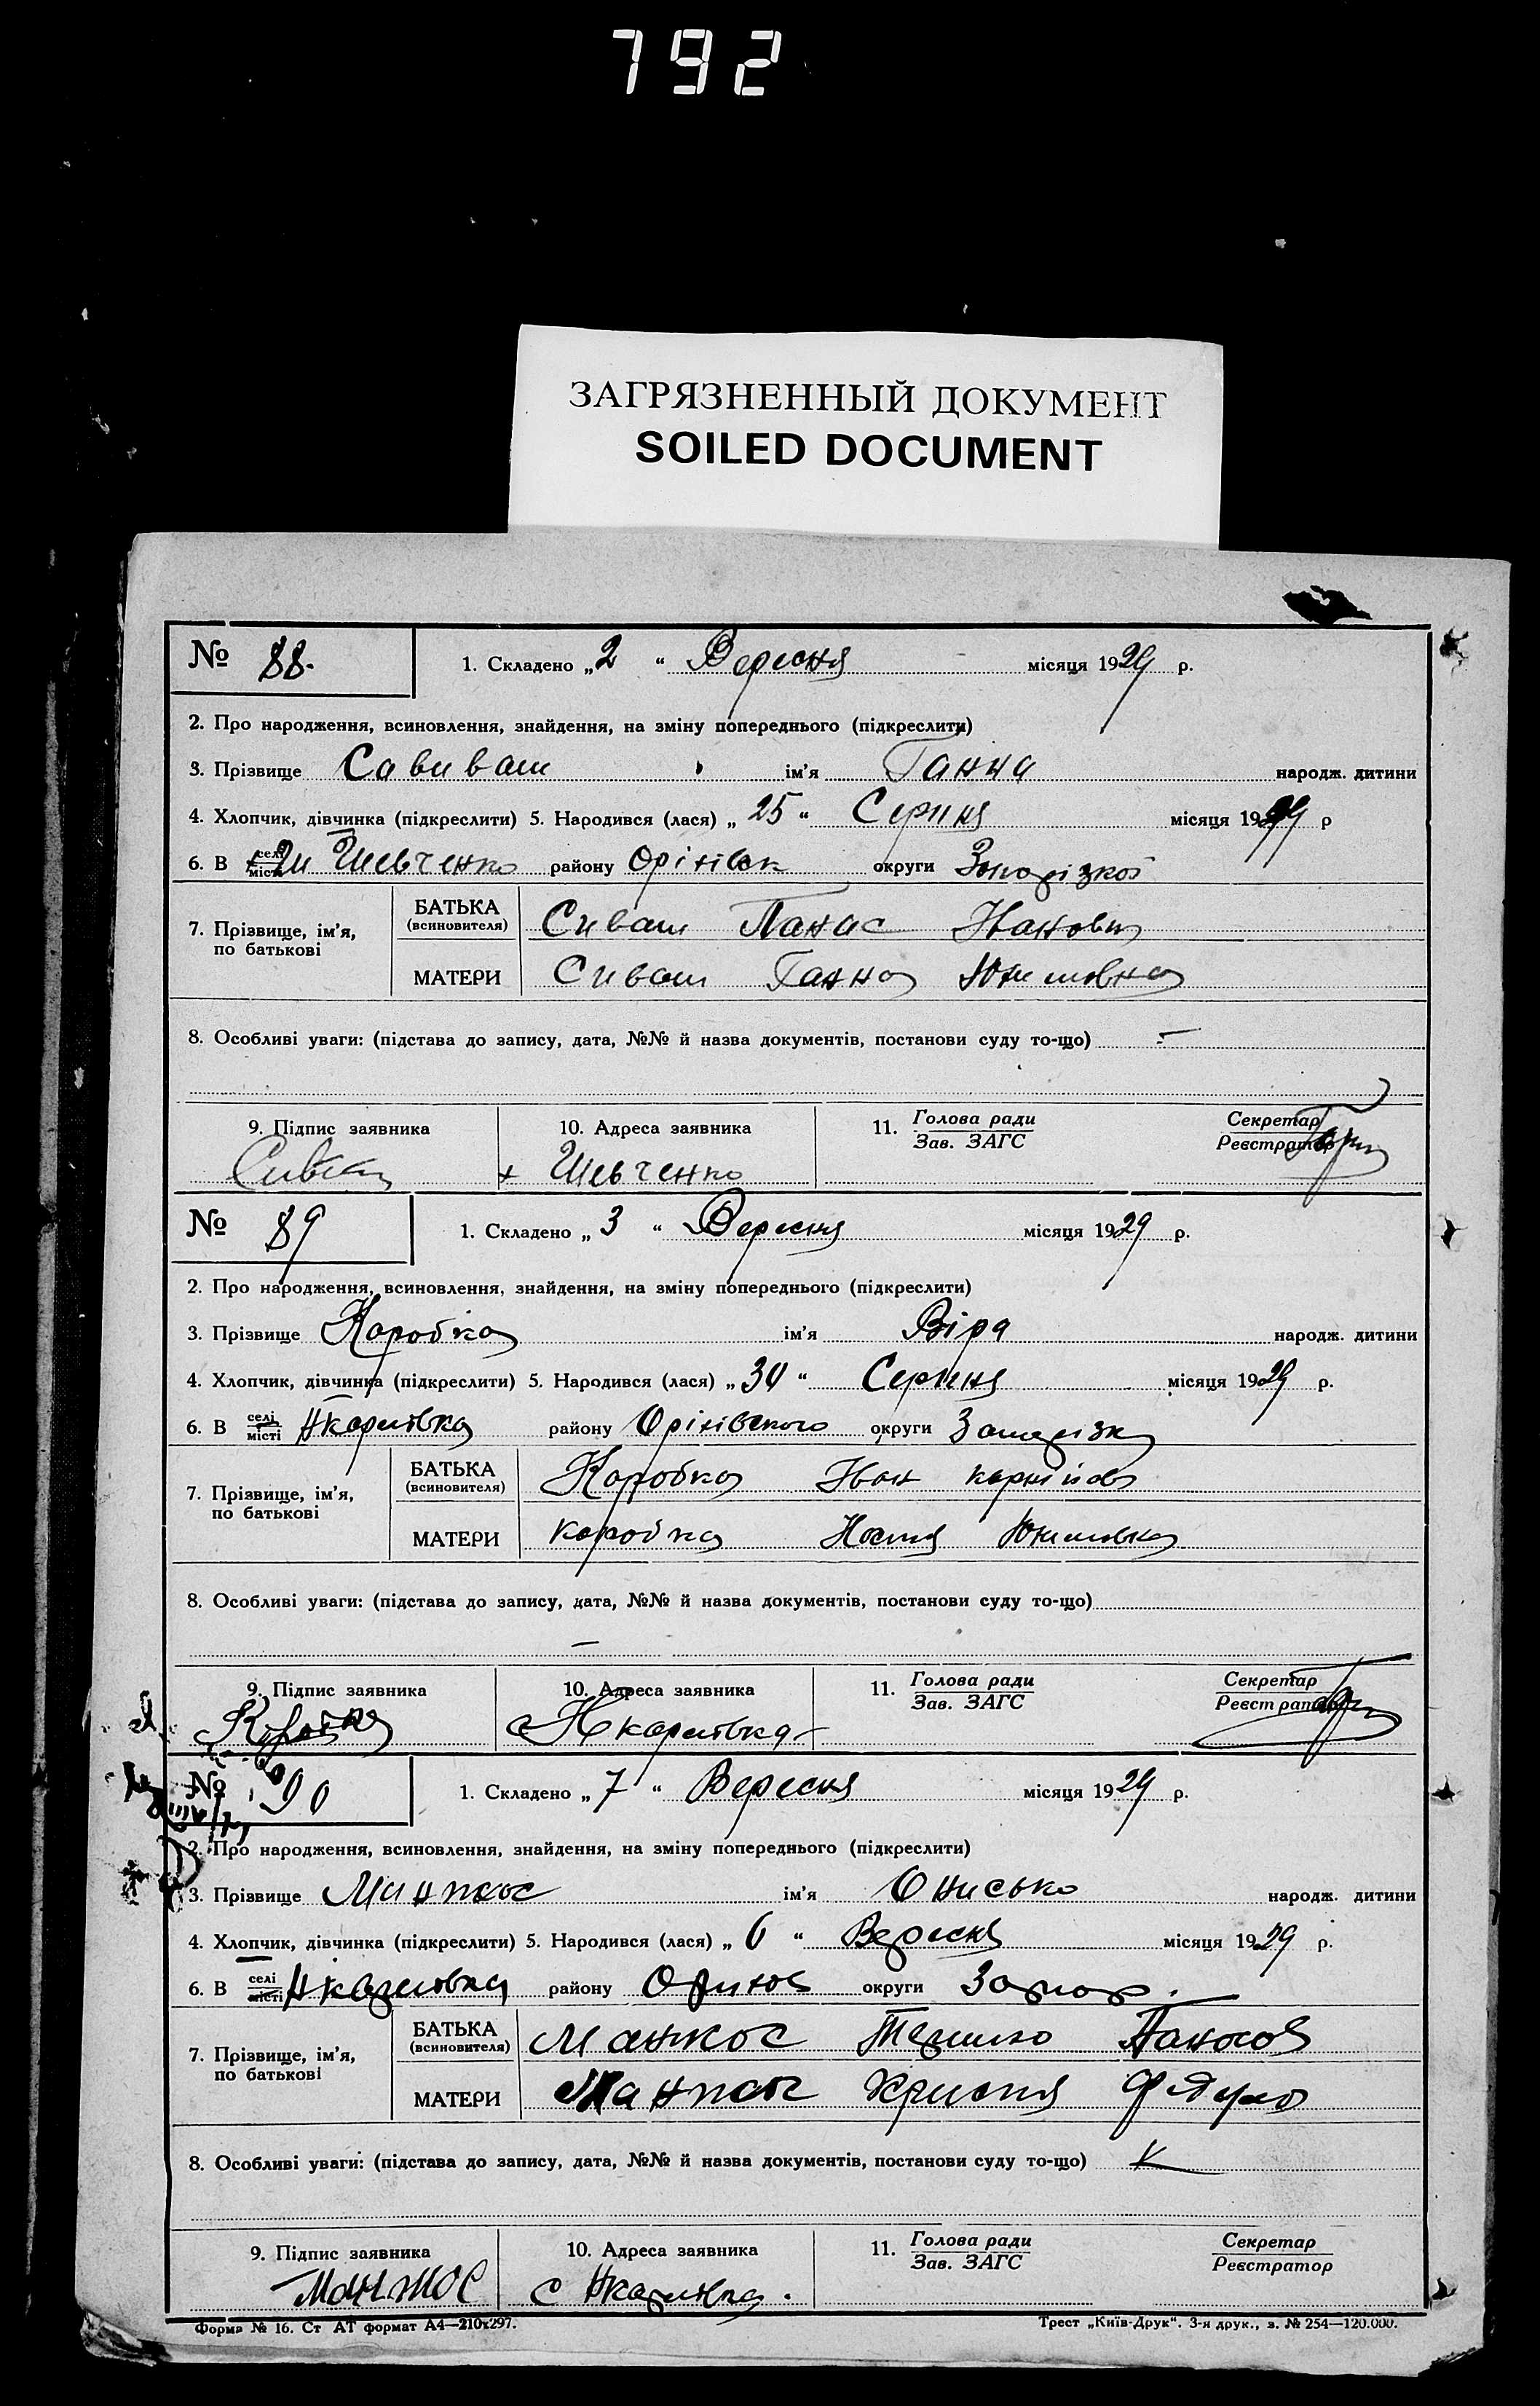 792
ЗАГРЯЗНЕННЫЙ ДОКУМЕНТ
SOILED DOCUMENT
№ 88. 1. Складено „2“ Вересня місяця 1929 р.
2. Про народження, всиновлення, знайдення, на зміну попереднього (підкреслити)
3. Прізвище Савиваш ім'я Ганна народж. дитини
4. Хлопчик, дівчинка (підкреслити) 5. Народився (лася) „25“ Серпня місяця 1929 р
6. В селі місті Шевченко району Оріхівск округи
7. Прізвище, ім'я, по батькові
БАТЬКА (всиновителя) Сиваш Панас Иванович
МАТЕРИ Сиваш Ганна
8. Особливі уваги: (підстава до запису, дата, №№ й назва документів, постанови суду то-що) –
9. Підпис заявника 10. Адреса заявника 11. Голова ради Зав. ЗАГС Секретар Реєстратор
х Шевченко
№ 89 1. Складено „3“ Вересня місяця 1929 р.
2. Про народження, всиновлення, знайдення, на зміну попереднього (підкреслити)
3. Прізвище Коробка ім'я Віра народж. дитини
4. Хлопчик, дівчинка (підкреслити) 5. Народився (лася) „30“ Серпня місяця 1929 р.
6. В селі місті Нкарлівка району Оріхівского округи
7. Прізвище, ім'я, по батькові
БАТЬКА (всиновителя) Коробка Иван
МАТЕРИ коробка Настя
8. Особливі уваги: (підстава до запису, дата, №№ й назва документів, постанови суду то-що)
–
9. Підпис заявника 10. Адреса заявника 11. Голова ради Зав. ЗАГС Секретар Реєстратор
с Нкарлівка
№ 90 1. Складено „7“ Вересня місяця 1929 р.
2. Про народження, всиновлення, знайдення, на зміну попереднього (підкреслити)
3. Прізвище Манжос ім'я Онисько народж. дитини
4. Хлопчик, дівчинка (підкреслити) 5. Народився (лася) „6“ Вересня місяця 1929 р.
6. В селі місті Нкарлівка району Оріхов округи Запор.
7. Прізвище, ім'я, по батькові
БАТЬКА (всиновителя) Манжос Панасов
МАТЕРИ Манжос Христя
8. Особливі уваги: (підстава до запису, дата, №№ й назва документів, постанови суду то-що)
9. Підпис заявника 10. Адреса заявника 11. Голова ради Зав. ЗАГС Секретар Реєстратор
Манжос с Нкарлівка.
Форма № 16. Ст АТ формат А4—210х297. Трест „Київ-Друк“. 3-я друк., з. № 254—120.000.